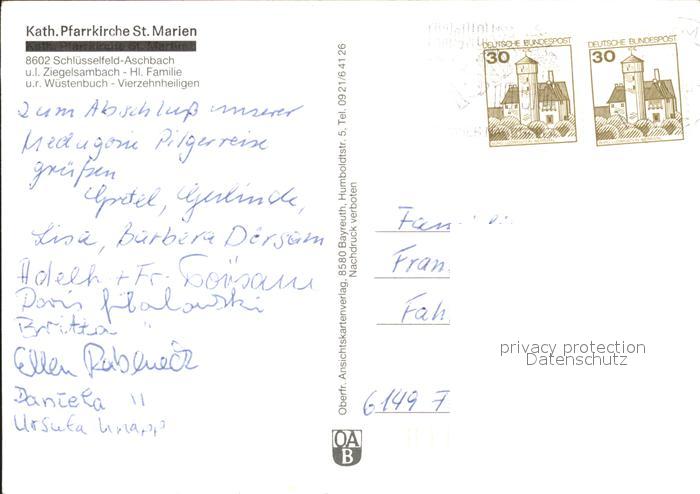 Kath. Pfarrkirche St. Marien
8602 Schlüsselfeld-Aschbach
u.l. Ziegelsambach - Hl. Familie
u.r. Wüstenbuch - Vierzehnheiligen
zum Abschluß unserer
Medugorie Pilgerreise
grüßen
Gretel, Gerlinde,
Lisa, Barbara Dörsam
Adelh + Fr. Dörsam
Doris
Britta "
Ellen
Daniela "
Ursula Knapp
Oberfr. Ansichtskartenverlag, 8580 Bayreuth, Humboldtstr. 5, Tel. 0921/64126
Nachdruck verboten
OA
B
DEUTSCHE BUNDESPOST
30
DEUTSCHE BUNDESPOST
30
Fam
Fran
Fah
6149 F
privacy protection
Datenschutz